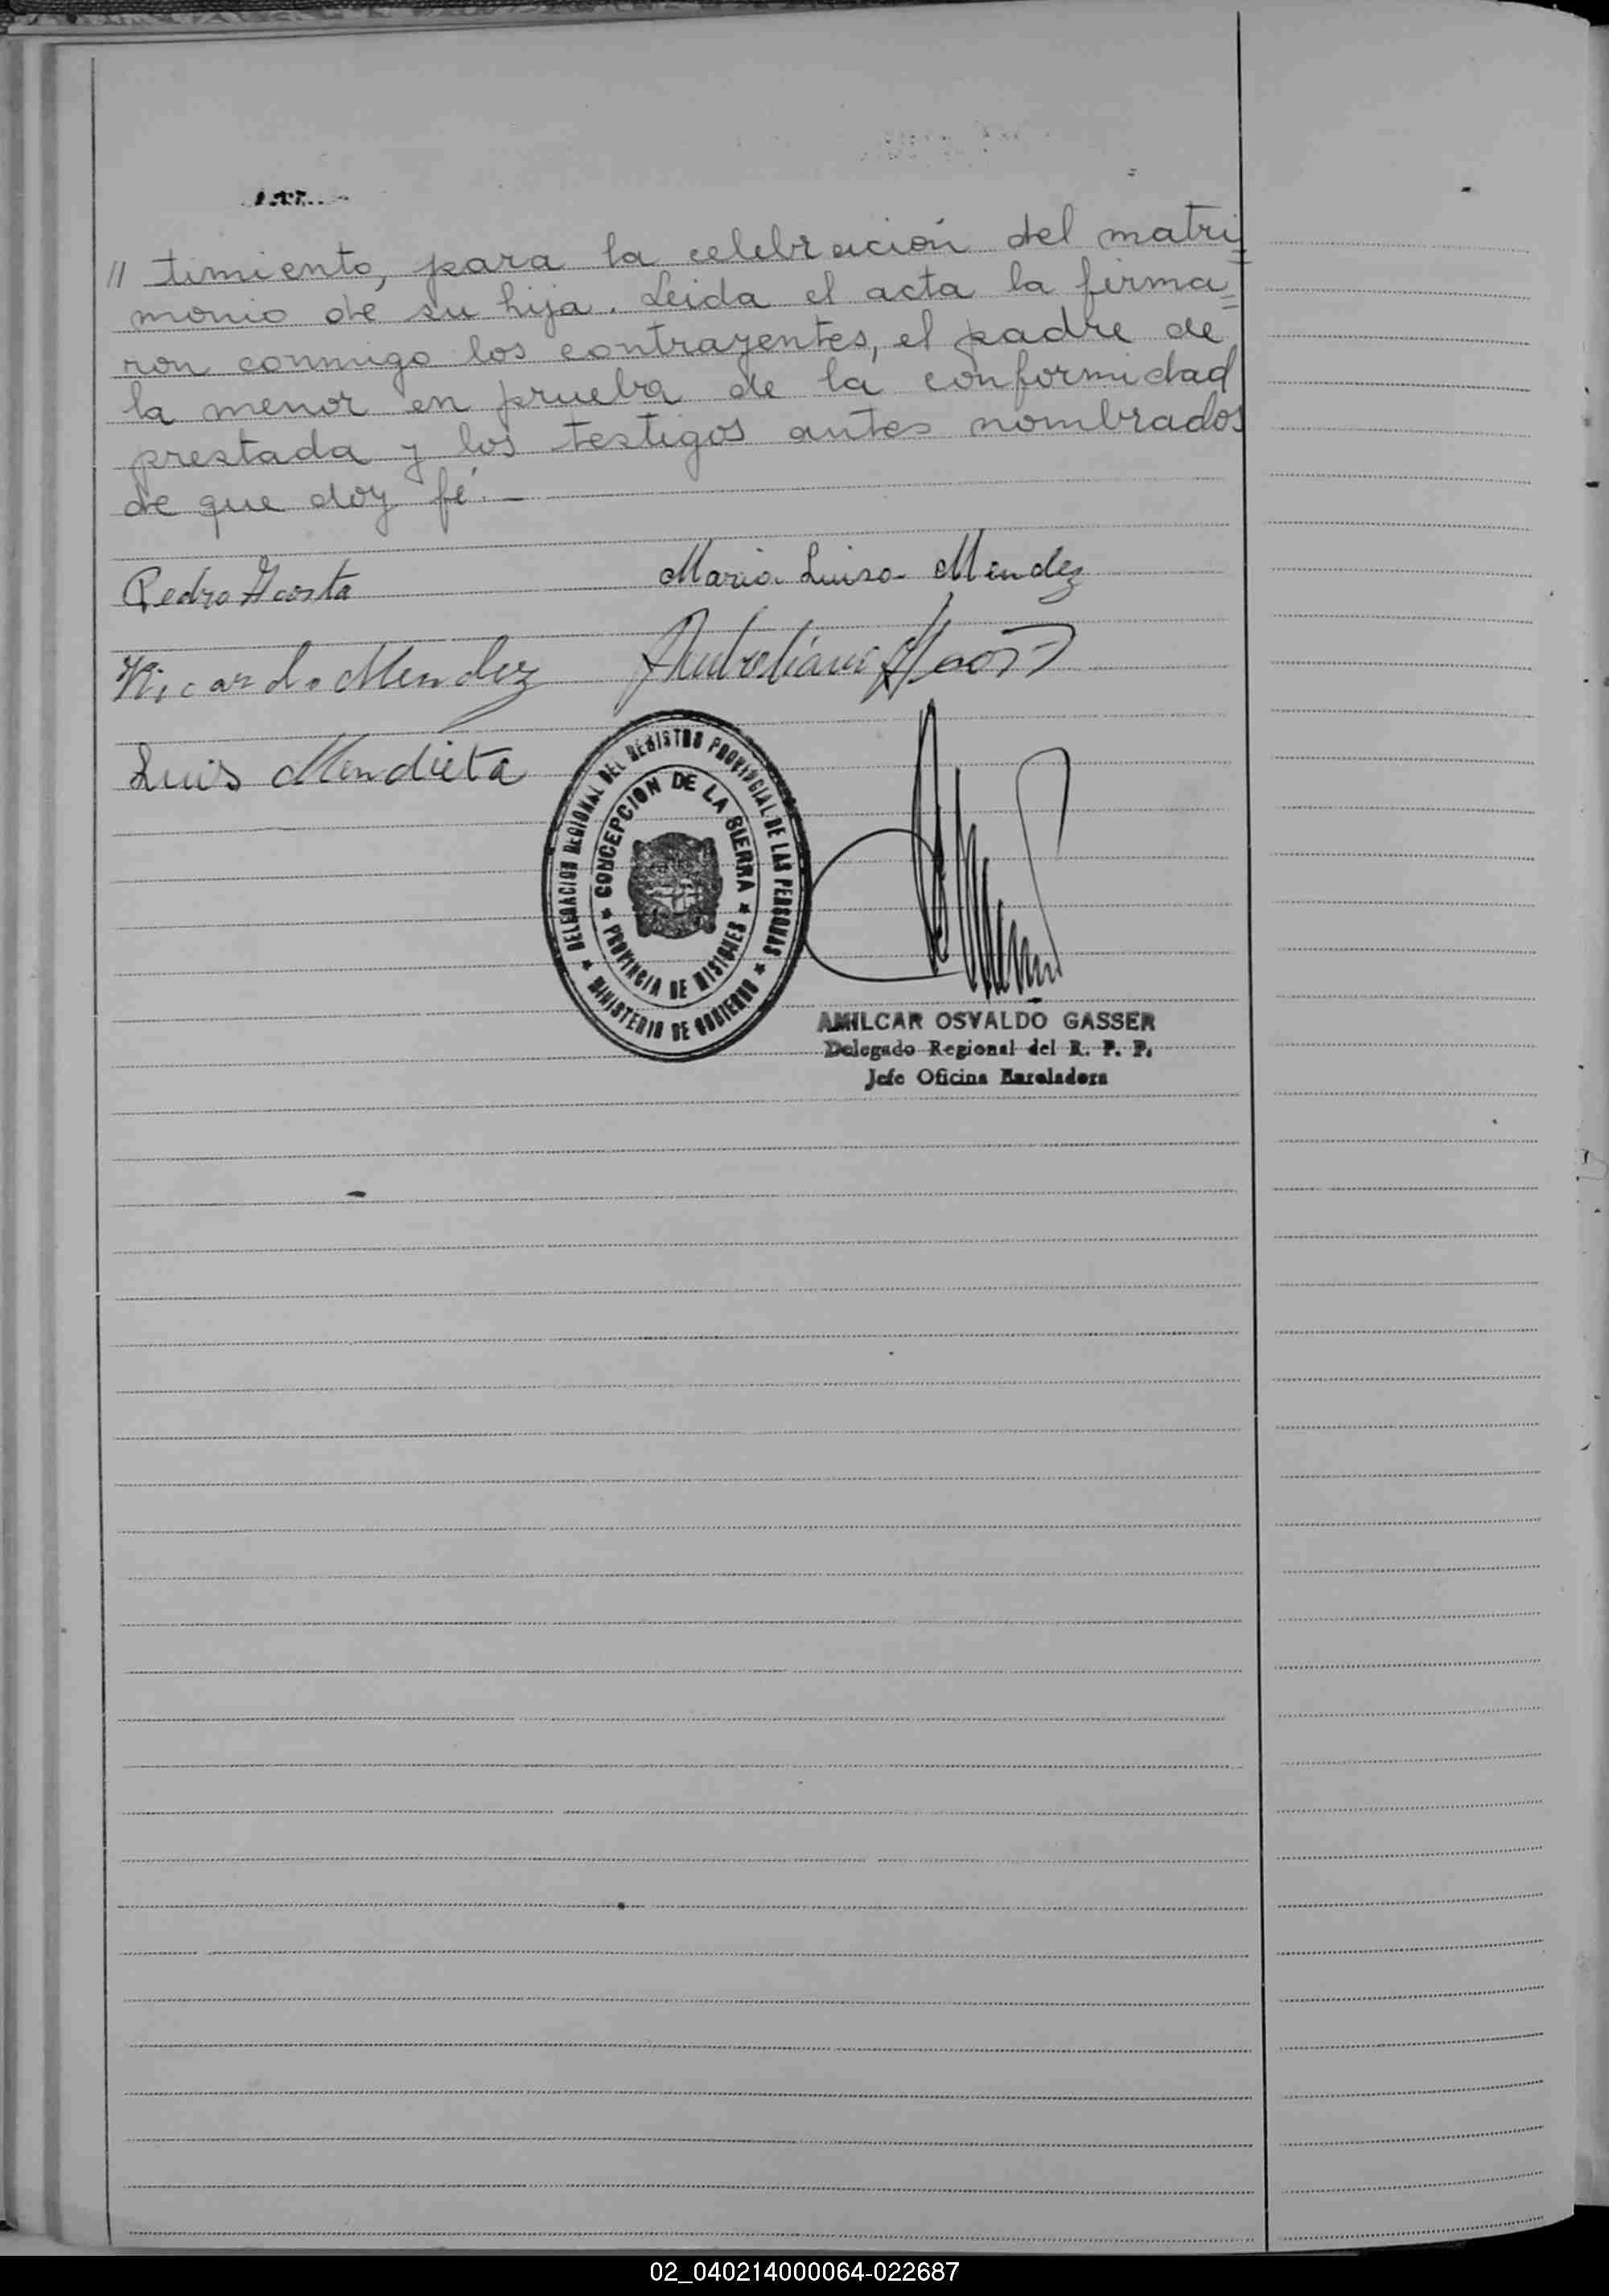 // timiento, para la celebración del matri=
monio de su hija. Leida el acta la firma=
ron conmigo los contrayentes, el padre de
la menor en prueba de la conformidad
prestada y los testigos antes nombrados
de que doy fé.—
Pedro Acosta
Maria Luisa Mendez
Ricardo Mendez
Luis Mendieta
DELEGACION REGIONAL DEL REGISTRO PROVINCIAL DE LAS PERSONAS
★ MINISTERIO DE GOBIERNO ★
★ CONCEPCION DE LA SIERRA ★
PROVINCIA DE MISIONES
AMILCAR OSVALDO GASSER
Delegado Regional del R. P. P.
Jefe Oficina
02_040214000064-022687